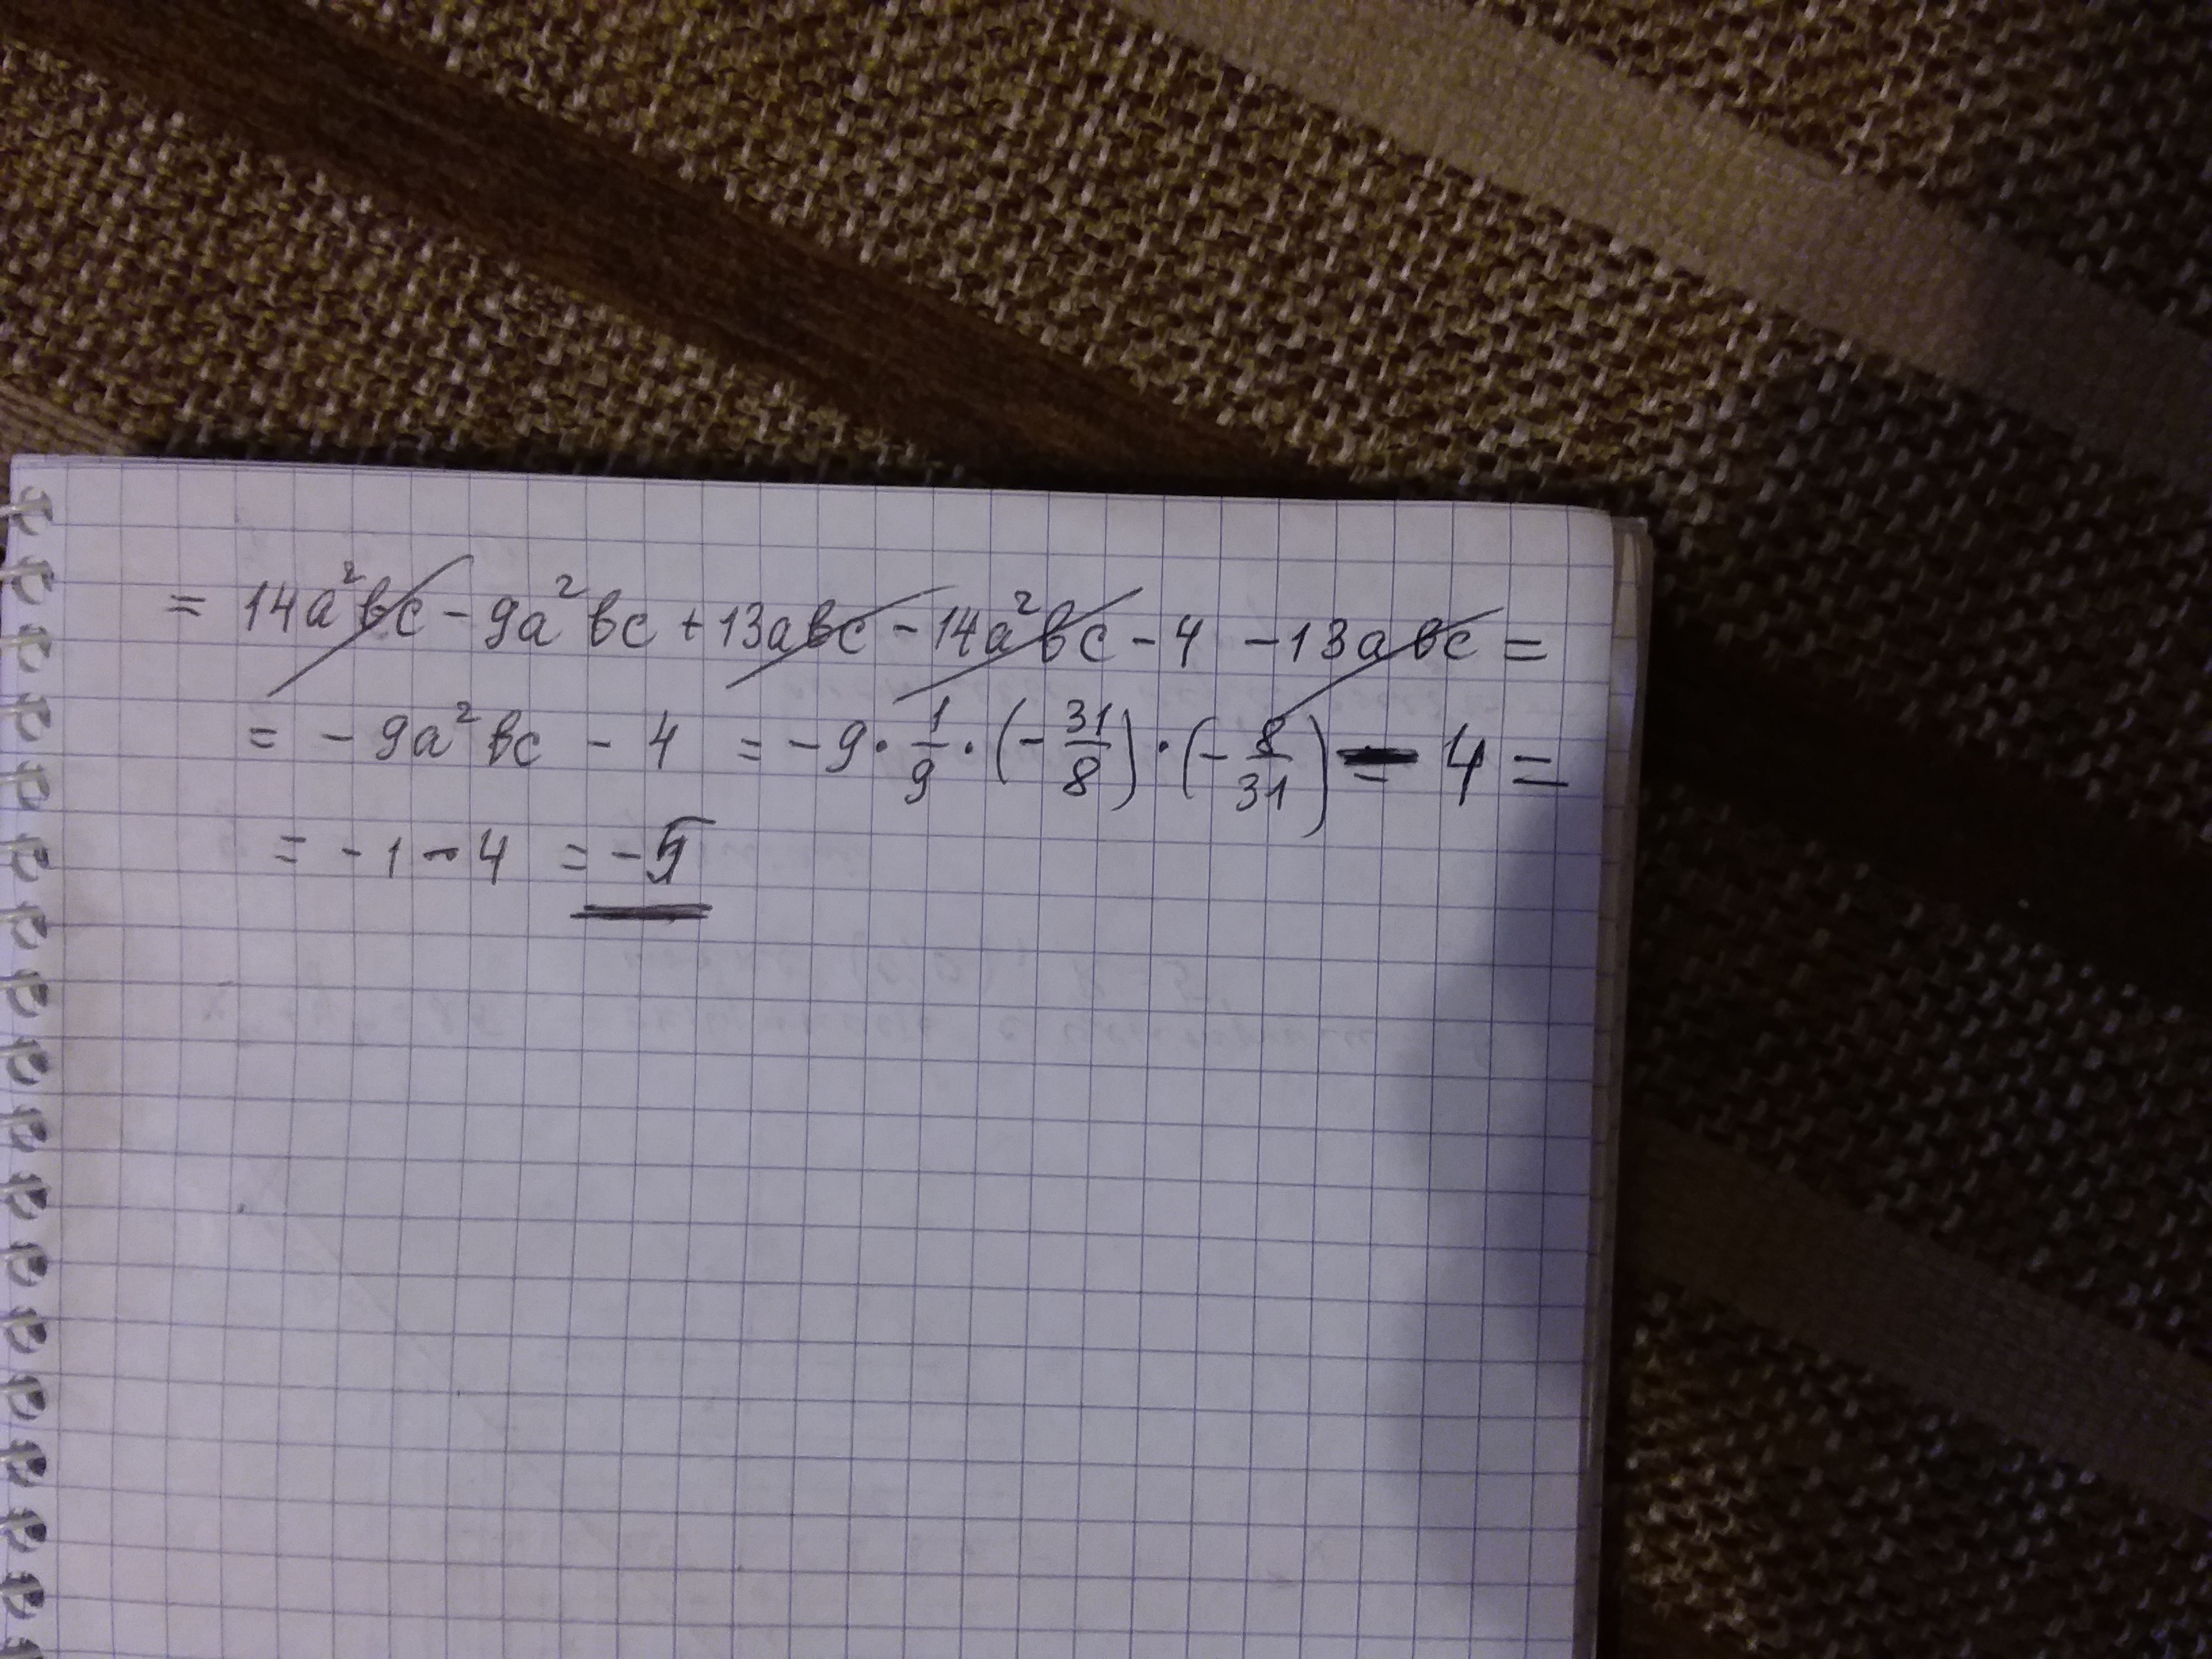 = 14a²bc - 9a²bc + 13abc - 14a²bc - 4 - 13abc =
= - 9a²bc - 4 = - 9 · 1/9 · (- 31/8) · (- 8/31) - 4 =
= - 1 - 4 = - 5